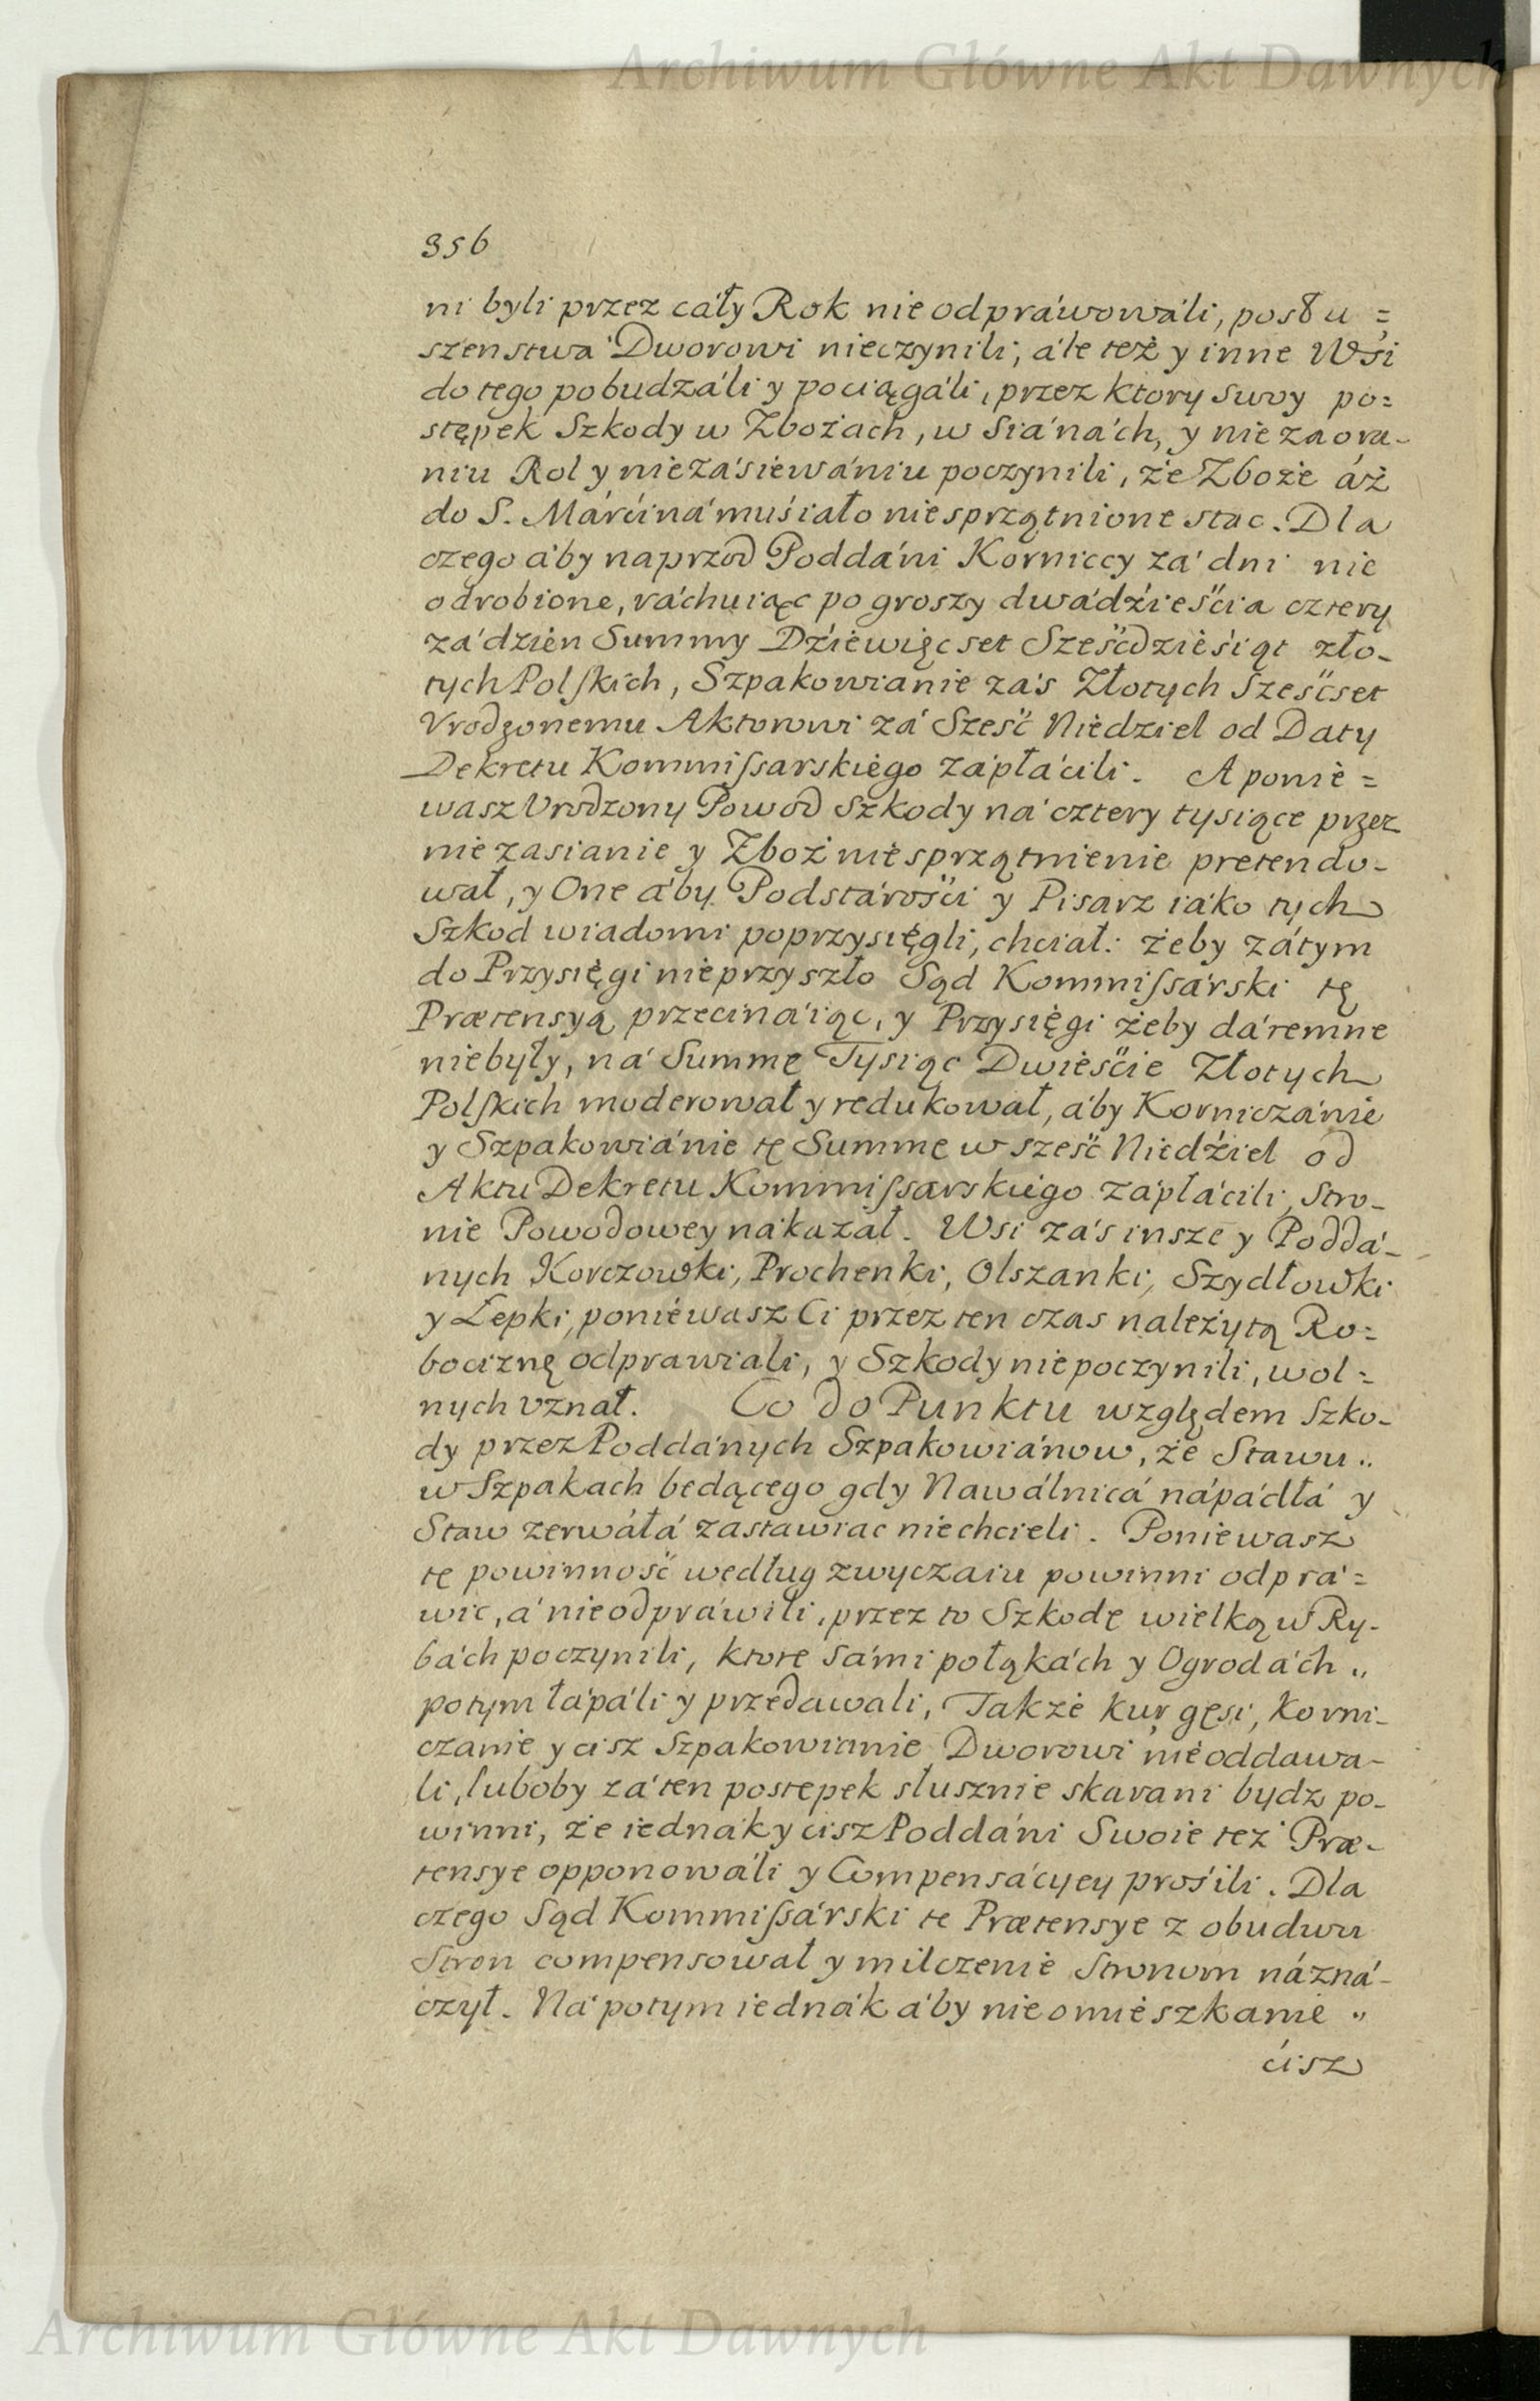 Archiwum Główne Akt Dawnych
356
ni byli przez cáły Rok nie odpráwowáli, posłu =
szenstwa Dworowi nieczynili, ále też y inne Wśi
do tego pobudzáli y pociągáli, przez ktory swoy po=
stępek Szkody w Zbożach, w Siánách, y nie zaora-
niu Rol y niezásiewániu poczynili, że Zboże áż
do S. Márćiná muśiało niesprzątnione stac. Dla
czego áby naprzod Poddáni Korniccy zá dni nie
odrobione, ráchuiąc po groszy dwádźieśćia cztery
zá dzień Summy Dźiewięcset Sześćdzieśiąt zło-
tych Polskich, Szpakowianie zaś Złotych Sześćset
Vrodzonemu Aktorowi zá Sześć Niedziel od Daty
Dekretu Kommissarskiego zápłácili. A ponie =
wasz Vrodzony Powod Szkody ná cztery tysiące przez
niezasianie y Zboż niesprzątnienie pretendo-
wał, y One áby Podstárośći y Pisarz iáko tych
Szkod wiadomi poprzysięgli, chciał: żeby zátym
do Przysięgi nieprzyszło Sąd Kommissárski tę
Prætensyą przecináiąc, y Przysięgi żeby dáremne
niebyły, ná Summę Tysiąc Dwieśćie Złotych
Polskich moderował y redukował, áby Korniczánie
y Szpakowiánie tę Summę w sześć Niedźiel od
Aktu Dekretu Kommissarskiego zápłáćili, Stro-
nie Powodowey nákazał. Wsi záś insze y Poddá-
nych Korczowki, Prochenki, Olszanki, Szydłowki
y Łepki, poniewasz Ci przez ten czas należytą Ro=
bociznę odprawiali, y Szkody niepoczynili, wol=
nych vznał. Co do Punktu względem Szko-
dy przez Poddánych Szpakowiánow, że Stawu „
w Szpakach będącego gdy Nawálnicá nápádłá y
Staw zerwáłá zastawiac niechcieli. Poniewasz
tę powinność według zwyczaiu powinni odprá=
wic, á nieodpráwili, przez to Szkodę wielką w Ry-
bách poczynili, ktore sámi połąkách y Ogrodách „
potym łápáli y przedawali, Także kur, gęsi, Korni-
czanie y cisz Szpakowianie Dworowi nieoddawa-
li, luboby zá ten postępek słusznie skarani bydz po-
winni, że iednák y cisz Poddáni Swoie też Præ-
tensye opponowáli y Compensácyey prośili. Dla
czego Sąd Kommissárski te Prætensye z obudwu
Stron compensował y milczenie Stronom názná-
czył. Ná potym iednák áby nieomieszkanie „
ćisz
Archiwum Główne Akt Dawnych